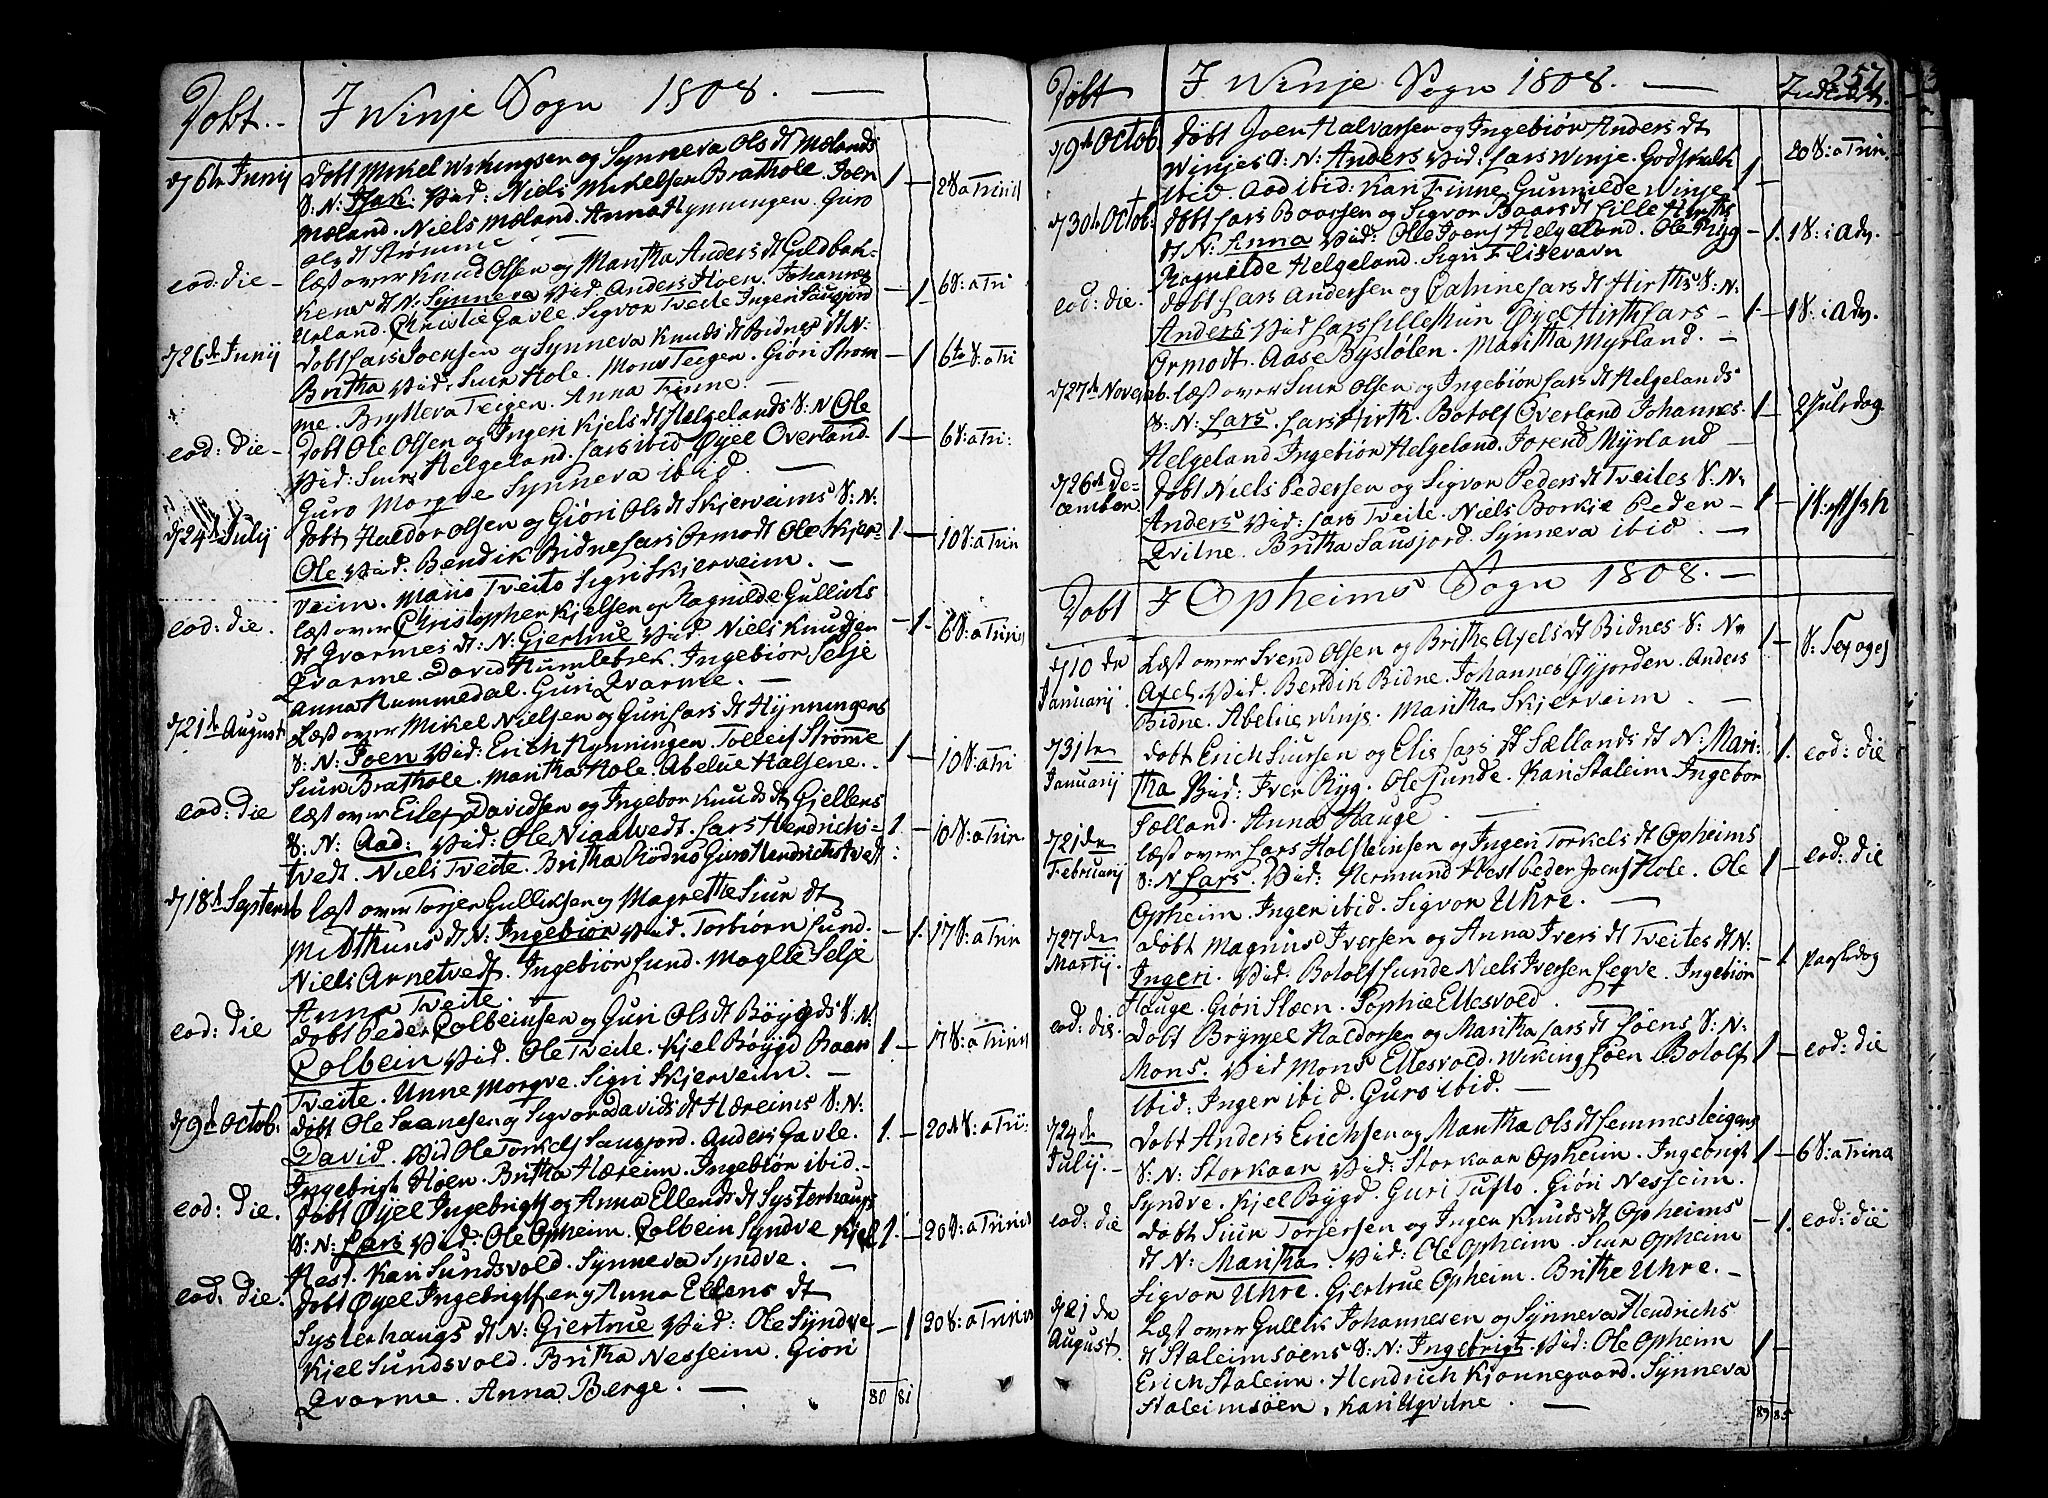 Døbt.
I Winje Sogn 1808. —
d 76te Junij
Døbt Mikel Wikingsen og Synneva Ols dt Mælands
S: N: Isak. Vid: Niels Mikelsen Brathole. Joen
Mæland. Niels Mæland. Anna Hynningen. Guro
Ols dt Strømme. —
1 —
2 S: a Trinit
eod: die —
læst over Knud Olsen og Maritha Anders dt Guldbak-
kens dt N: Synneva Vid. Anders Hoen. Johannes
Urland. Christie Gavle. Sigvor Tveite Inger Sausjord
— 1
6 S: a Tri
d 26de Junij
Døbt Lars Joensen og Synneva Knuds dt Bidnes dt N:
Britha Vid: Siur Hole. Mons Teigen. Giøri Strøm
me. Brytteva Teigen. Anna Finne. —
— 1
6te S: a Tri
eod: die —
Døbt Ole Olsen og Ingeri Kjels dt Helgelands S: N Ole
Vid: Siur Helgeland. Lars ibid Øyel Overland.
Guro Morqve Synneva ibid. —
1 —
6 S: a Tri:
d 24de Julij
Døbt Haldor Olsen og Giøri Ols dt Skjerveims S: N:
Ole Vid. Bendik Bidne Lars Ormodt Ole Skjer-
veim. Mario Tveito Sigri Skjerveim. —
1 —
10 S: a Trin
eod: die.
læst over Christopher Kjelsen og Ragnilde Gulliks
dt Qvarmes dt: N: Gjertrue Vid Niels Knudsen
Qvarme. David Humlebrek. Ingebiør Selje
Anna Hummedal. Guri Qvarme. —
— 1.
6 S: a Trinit
d 21de August
Læst over Mikel Nielsen og Guri Lars dt Hynningens
S: N: Joen Vid: Erich Hynningen. Tolleif Strømme
Siur Brathole. Maritha Hole. Abelue Halsene. —
1 —
10 S: a Tri
eod: die
læst over Eilef Davidsen og Ingebor Knuds dt Gjellens
S: N: Aad: Vid: Ole Niaalvedt. Lars Hendrichs-
tvedt. Niels Tveite. Britha Rødno Guro Hendrichstvedt
1. —
10 S: a Trin
d 18de Septemb
læst over Torjer Gulliksen og Magrethe Siur dt
Midthuns dt N: Ingebiør Vid. Torbiørn Lund.
Niels Arnetvedt. Ingebiør Lund. Maglle Selje
Anna Tveite. —
— 1.
17 S: a Trin
eod: die
Døbt Peder Colbeinsen og Guri Ols dt Bøygds S: N:
Colbein Vid. Ole Tveite. Kjel Bøygd Baar
Tveite. Unne Morqve. Sigri Skjerveim. —
1. —
17 S: a Trinit
d 9de Octob.
Døbt Ole Saanesen og Sigvor Davids dt Hæreims S: N:
David. Vid Ole Torkels Sausjord. Anders Gavle.
Ingebrigt Høen. Britha Hæreim. Ingebiør ibid. —
1. —
20de S: a Tri:
eod: die.
Døbt Øyel Ingebrigts og Anna Ellends dt Systerhaugs
S: N: Lars Vid: Ole Opheim. Colbein Syndve Kjel
Hest. Kari Sundsvold. Synneva Syndve. —
1. —
20 S: a Trinit
eod: die.
Døbt Øyel Ingebrigts en og Anna Ellens dt
Systerhaugs dt N: Gjertrue Vid: Ole Syndve
Kjel Sundsvold. Britha Nesseim. Giøri
Qvarme. Anna Berge. —
— 1
20 S: a Trinit
80 81
Døbt
I Winje Sogn 1808. —
257
d 9de Octob.
Døbt Joen Halvarsen og Ingebiør Anders dt
Winjes S: N: Anders Vid: Lars Winje. Godskalk
ibid. Aad ibid: Kari Finne Gunnilde Winje
1 —
20 S: a Trin.
d 30te Octob:
Døbt Lars Baarsen og Sigvor Baars dt Lille Hirths
dt N: Anna Vid: Olle Joens Helgeland. Ole Ryg
Ragnilde Helgeland. Sigri Flisevavn
— 1.
1 S: i Adv.
eod: die.
Døbt Lars Andersen og Catrine Lars dt Hirths S: N:
Anders Vid Lars Lilleskun Øyel Hirth Lars
Ormodt. Aase Bystølen. Maritha Myrland. —
1 —
1 S: i Adv.
d 27de Novemb.
læst over Siur Olsen og Ingebiør Lars dt Helgelands
S: N: Lars. Lars Hirth. Botolf Overland Johannes
Helgeland Ingebiør Helgeland. Jorend Myrland —
1 —
2 Juledag
d 26de De-
cember.
Døbt Niels Pedersen og Sigvor Peders dt Tveites S: N:
Anders Vid: Lars Tveite. Niels Borkje Peder
Qvilne. Britha Sausjord. Synneva ibid. —
1 —
Døbt
I Opheims Sogn 1808. —
d 10de
Januarij
Læst over Svend Olsen og Britha Axels dt Bidnes S: N:
Axel. Vid. Bendik Bidne. Johannes Øyjorden. Anders
Bidne. Abelue Winje. Maritha Skjerveim. —
1 —
S: Sexages
d 31te
Januarij
Døbt Erich Siursen og Elis Lars dt Sællands dt N: Mari-
tha Vid: Iver Ryg. Ole Sunde. Kari Staleim Ingebor
Sælland. Anna Hauge. —
1.
eod: die
d 21de
Februarij
læst over Lars Holsteinsen og Ingeri Torkels dt Opheims
S: N Lars. Vid: Hermund Hest Peder Joens Hole. Ole
Opheim. Inger ibid. Sigvor Uhre. —
1 —
eod: die
d 27de
Martij.
Døbt Magnus Iversen og Anna Ivers dt Tveites dt N:
Ingeri. Vid: Botolf Sunde Niels Iversen Legve. Ingebiør
Hauge. Giøri Slæen. Sophie Ellesvold.
— 1
Paaskedag
eod: die.
Døbt Brynjel Haldorsen og Maritha Lars dt Løens S: N:
Mons. Vid Mons Ellesvold. Wiking Løen Botolf
ibid: Inger ibid. Guro ibid. —
1 —
eod: die
d 24de
Julij. —
Døbt Anders Erichsen og Maritha Ols dt Lemmesteigens
S: N: Storkaar Vid: Storkaar Opheim. Ingebrigt
Syndve. Kjel Bygd. Guri Tufto. Giøri Nesseim.
1 —
6 S: a Trina
eod: die
Døbt Siur Torjersen og Inger Knuds dt Opheims
dt N: Maritha. Vid: Ole Opheim. Siur Opheim
Sigvor Uhre. Gjertrue Opheim. Brithe Uhre. —
— 1.
eod: die
d 21de
August.
Læst over Gullik Johannesen og Synneva Hendrichs
dt Staleimsøens S: N: Ingebrigt. Vid: Ole Opheim
Erich Staleim. Hendrich Kjønnegaard. Synneva
Staleimsøen. Kari Uqvitne. —
1 —
89 85